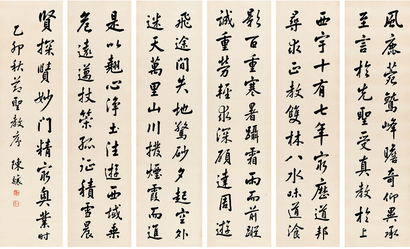 是以翹心淨土往遊西域乘
危遠邁杖策孤征積雪晨
飛途間失地驚砂夕起空外
迷天萬里山川撥煙霞而進
影百重寒暑躡霜雨而前蹤
誠重勞輕求深願達周遊
西宇十有七年窮歷道邦
尋求正教雙林八水味道飡
風鹿苑鷲峰瞻奇仰異承
至言於先聖受真教於上
賢探賾妙門精窮奧業時
己卯秋節聖教序 陳